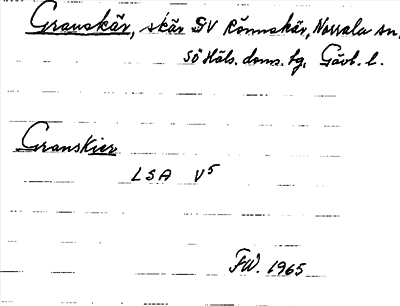 Granskär, skär SV Rönnskär, Norrala sn,
Sö Häls. doms. tg, Gävl. l.
Granskier
LSA V5
FW. 1965